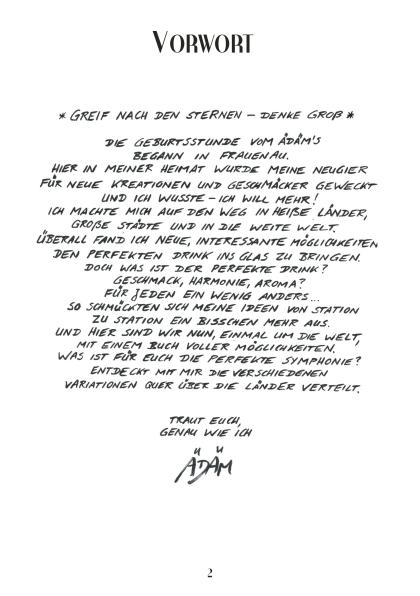 VORWORT
* GREIF NACH DEN STERNEN – DENKE GROß *
DIE GEBURTSSTUNDE VOM ÄDÄM'S
BEGANN IN FRAUENAU.
HIER IN MEINER HEIMAT WURDE MEINE NEUGIER
FÜR NEUE KREATIONEN UND GESCHMÄCKER GEWECKT
UND ICH WUSSTE – ICH WILL MEHR!
ICH MACHTE MICH AUF DEN WEG IN HEIßE LÄNDER,
GROßE STÄDTE UND IN DIE WEITE WELT.
ÜBERALL FAND ICH NEUE, INTERESSANTE MÖGLICHKEITEN
DEN PERFEKTEN DRINK INS GLAS ZU BRINGEN.
DOCH WAS IST DER PERFEKTE DRINK?
GESCHMACK, HARMONIE, AROMA?
FÜR JEDEN EIN WENIG ANDERS...
SO SCHMÜCKTEN SICH MEINE IDEEN VON STATION
ZU STATION EIN BISSCHEN MEHR AUS.
UND HIER SIND WIR NUN, EINMAL UM DIE WELT,
MIT EINEM BUCH VOLLER MÖGLICHKEITEN.
WAS IST FÜR EUCH DIE PERFEKTE SYMPHONIE?
ENTDECKT MIT MIR DIE VERSCHIEDENEN
VARIATIONEN QUER ÜBER DIE LÄNDER VERTEILT.
TRAUT EUCH,
GENAU WIE ICH
ÄDÄM
2